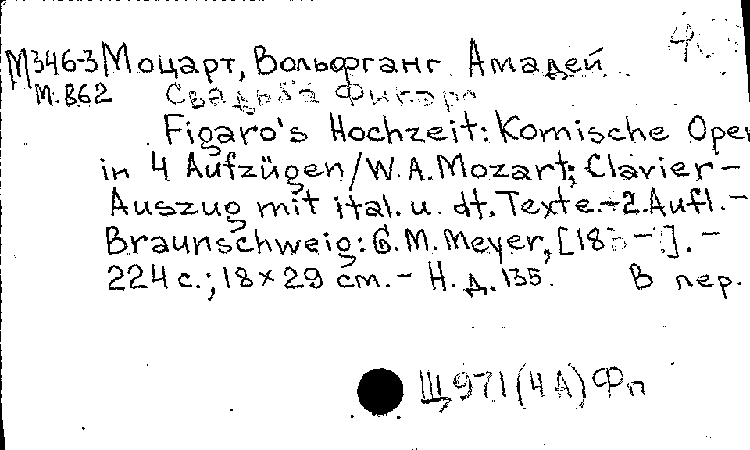 М346-3 Моцарт, Вольфганг Амадей
М.В62 Свадьба Фигаро
Figaro's Hochzeit: Komische Oper
in 4 Aufzügen/W.A.Mozart; Clavier-
Auszug mit ital. u. dt. Texte.-2.Aufl.-
Braunschweig: G.M.Meyer, [18 -
224 с.; 18×29 cm.- Н.д.135. В пер.
Щ971(4А)Фп